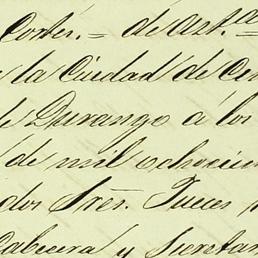 Cortés. = de art.a
la Ciudad de
de Durango á los
de mil ochocien
dos Sres. Jueces
Cabecera y Secretar